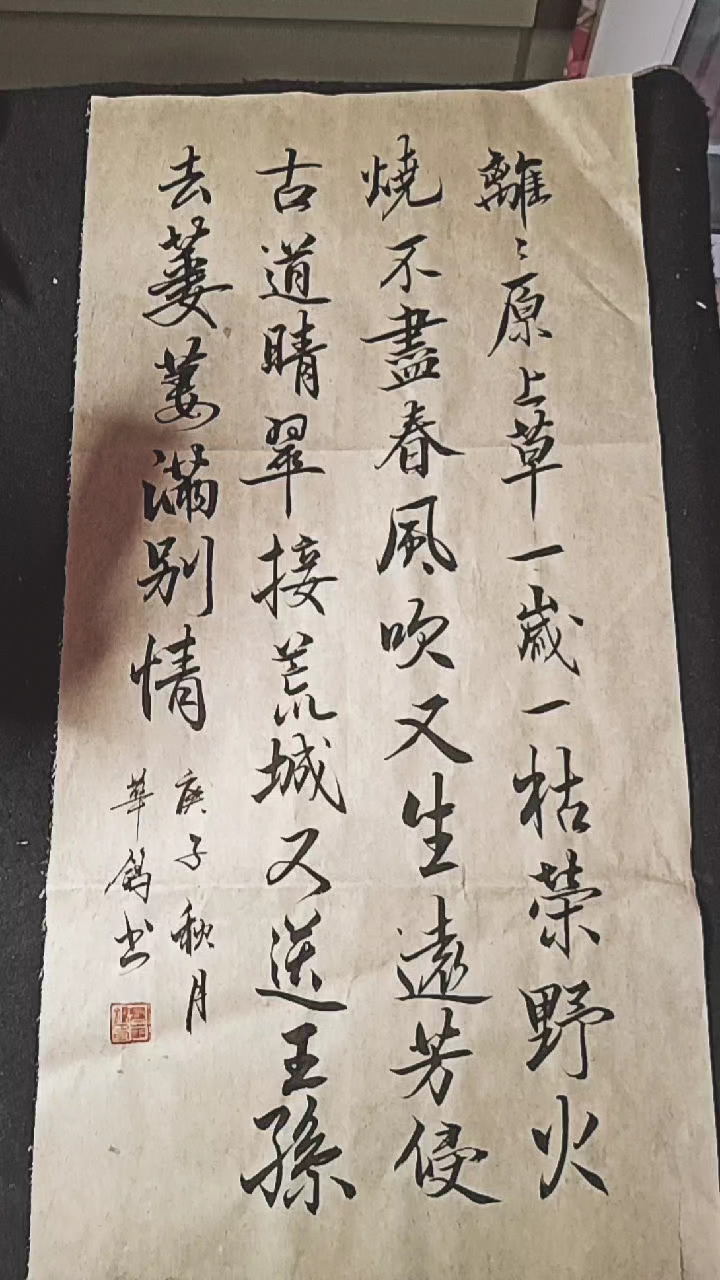 離〻原上草一歲一枯榮野火
燒不盡春風吹又生遠芳侵
古道晴翠接荒城又送王孫
去萋萋滿别情
庚子秋月
華书